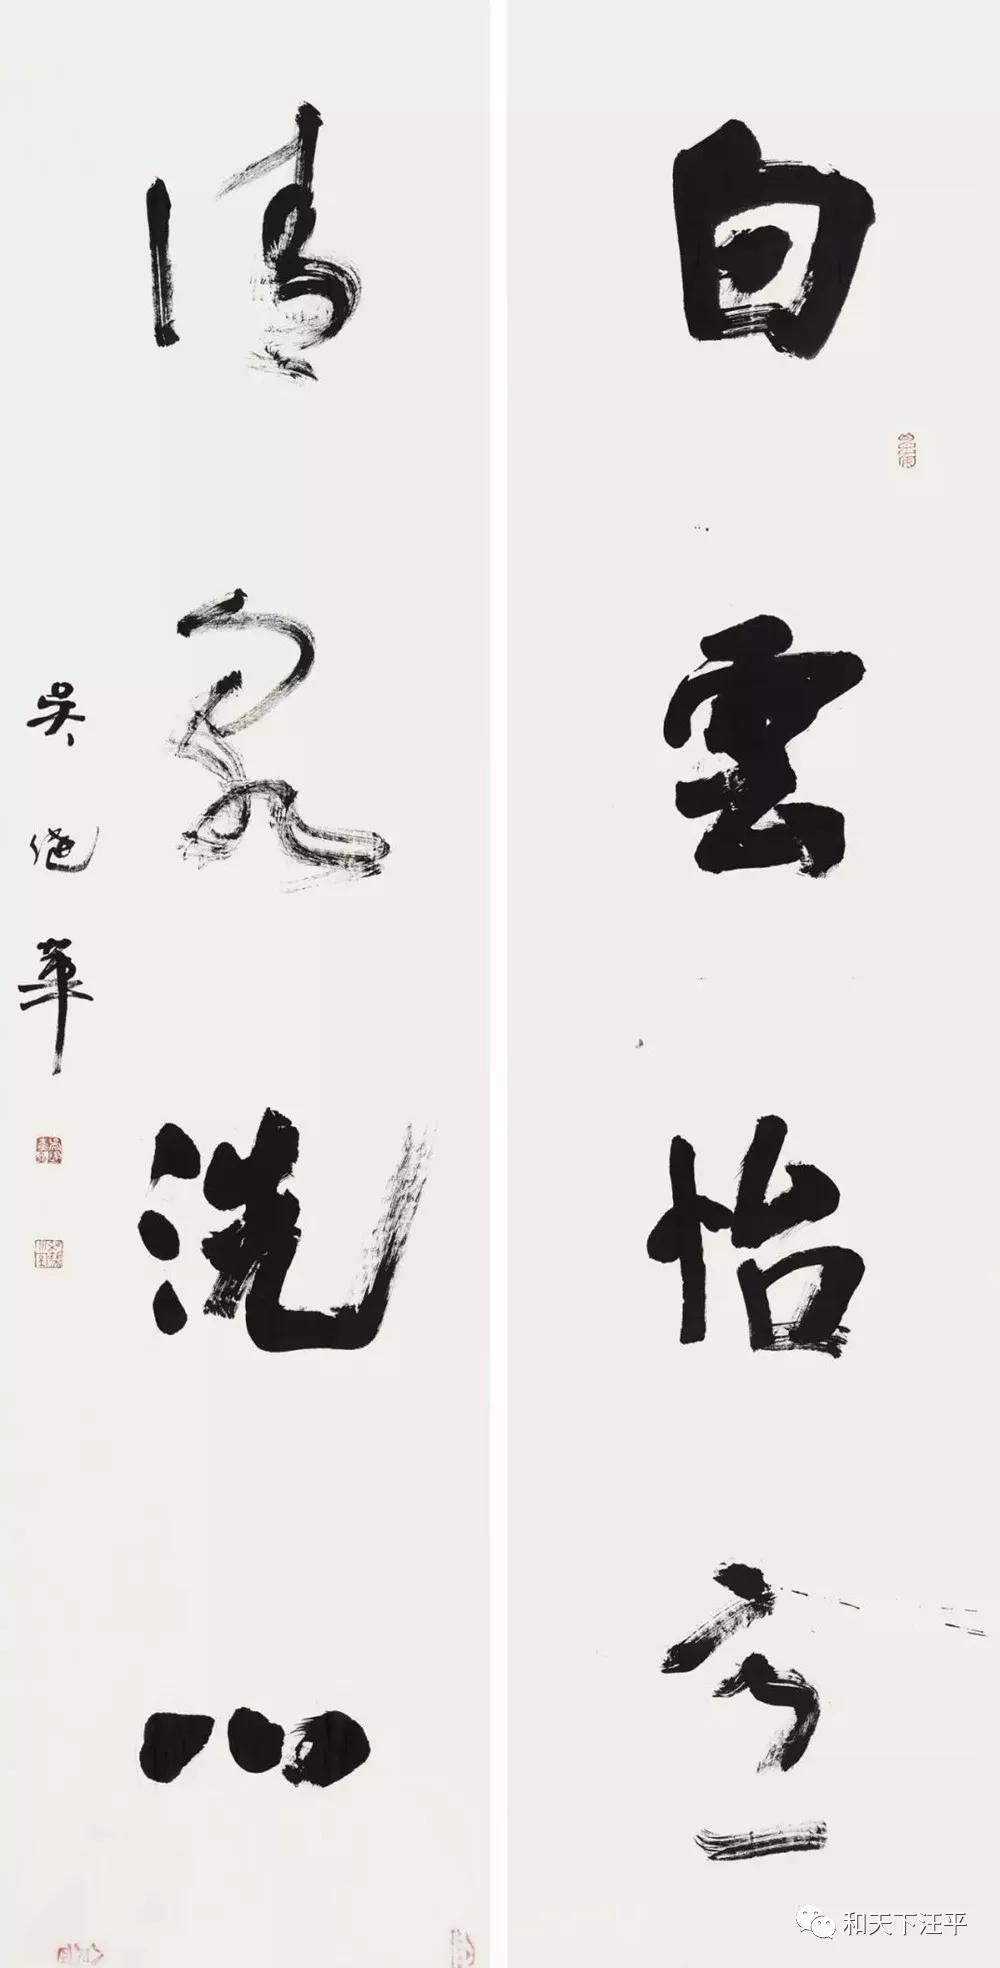 白雲怡意
清泉洗心
吳華
和天下汪平